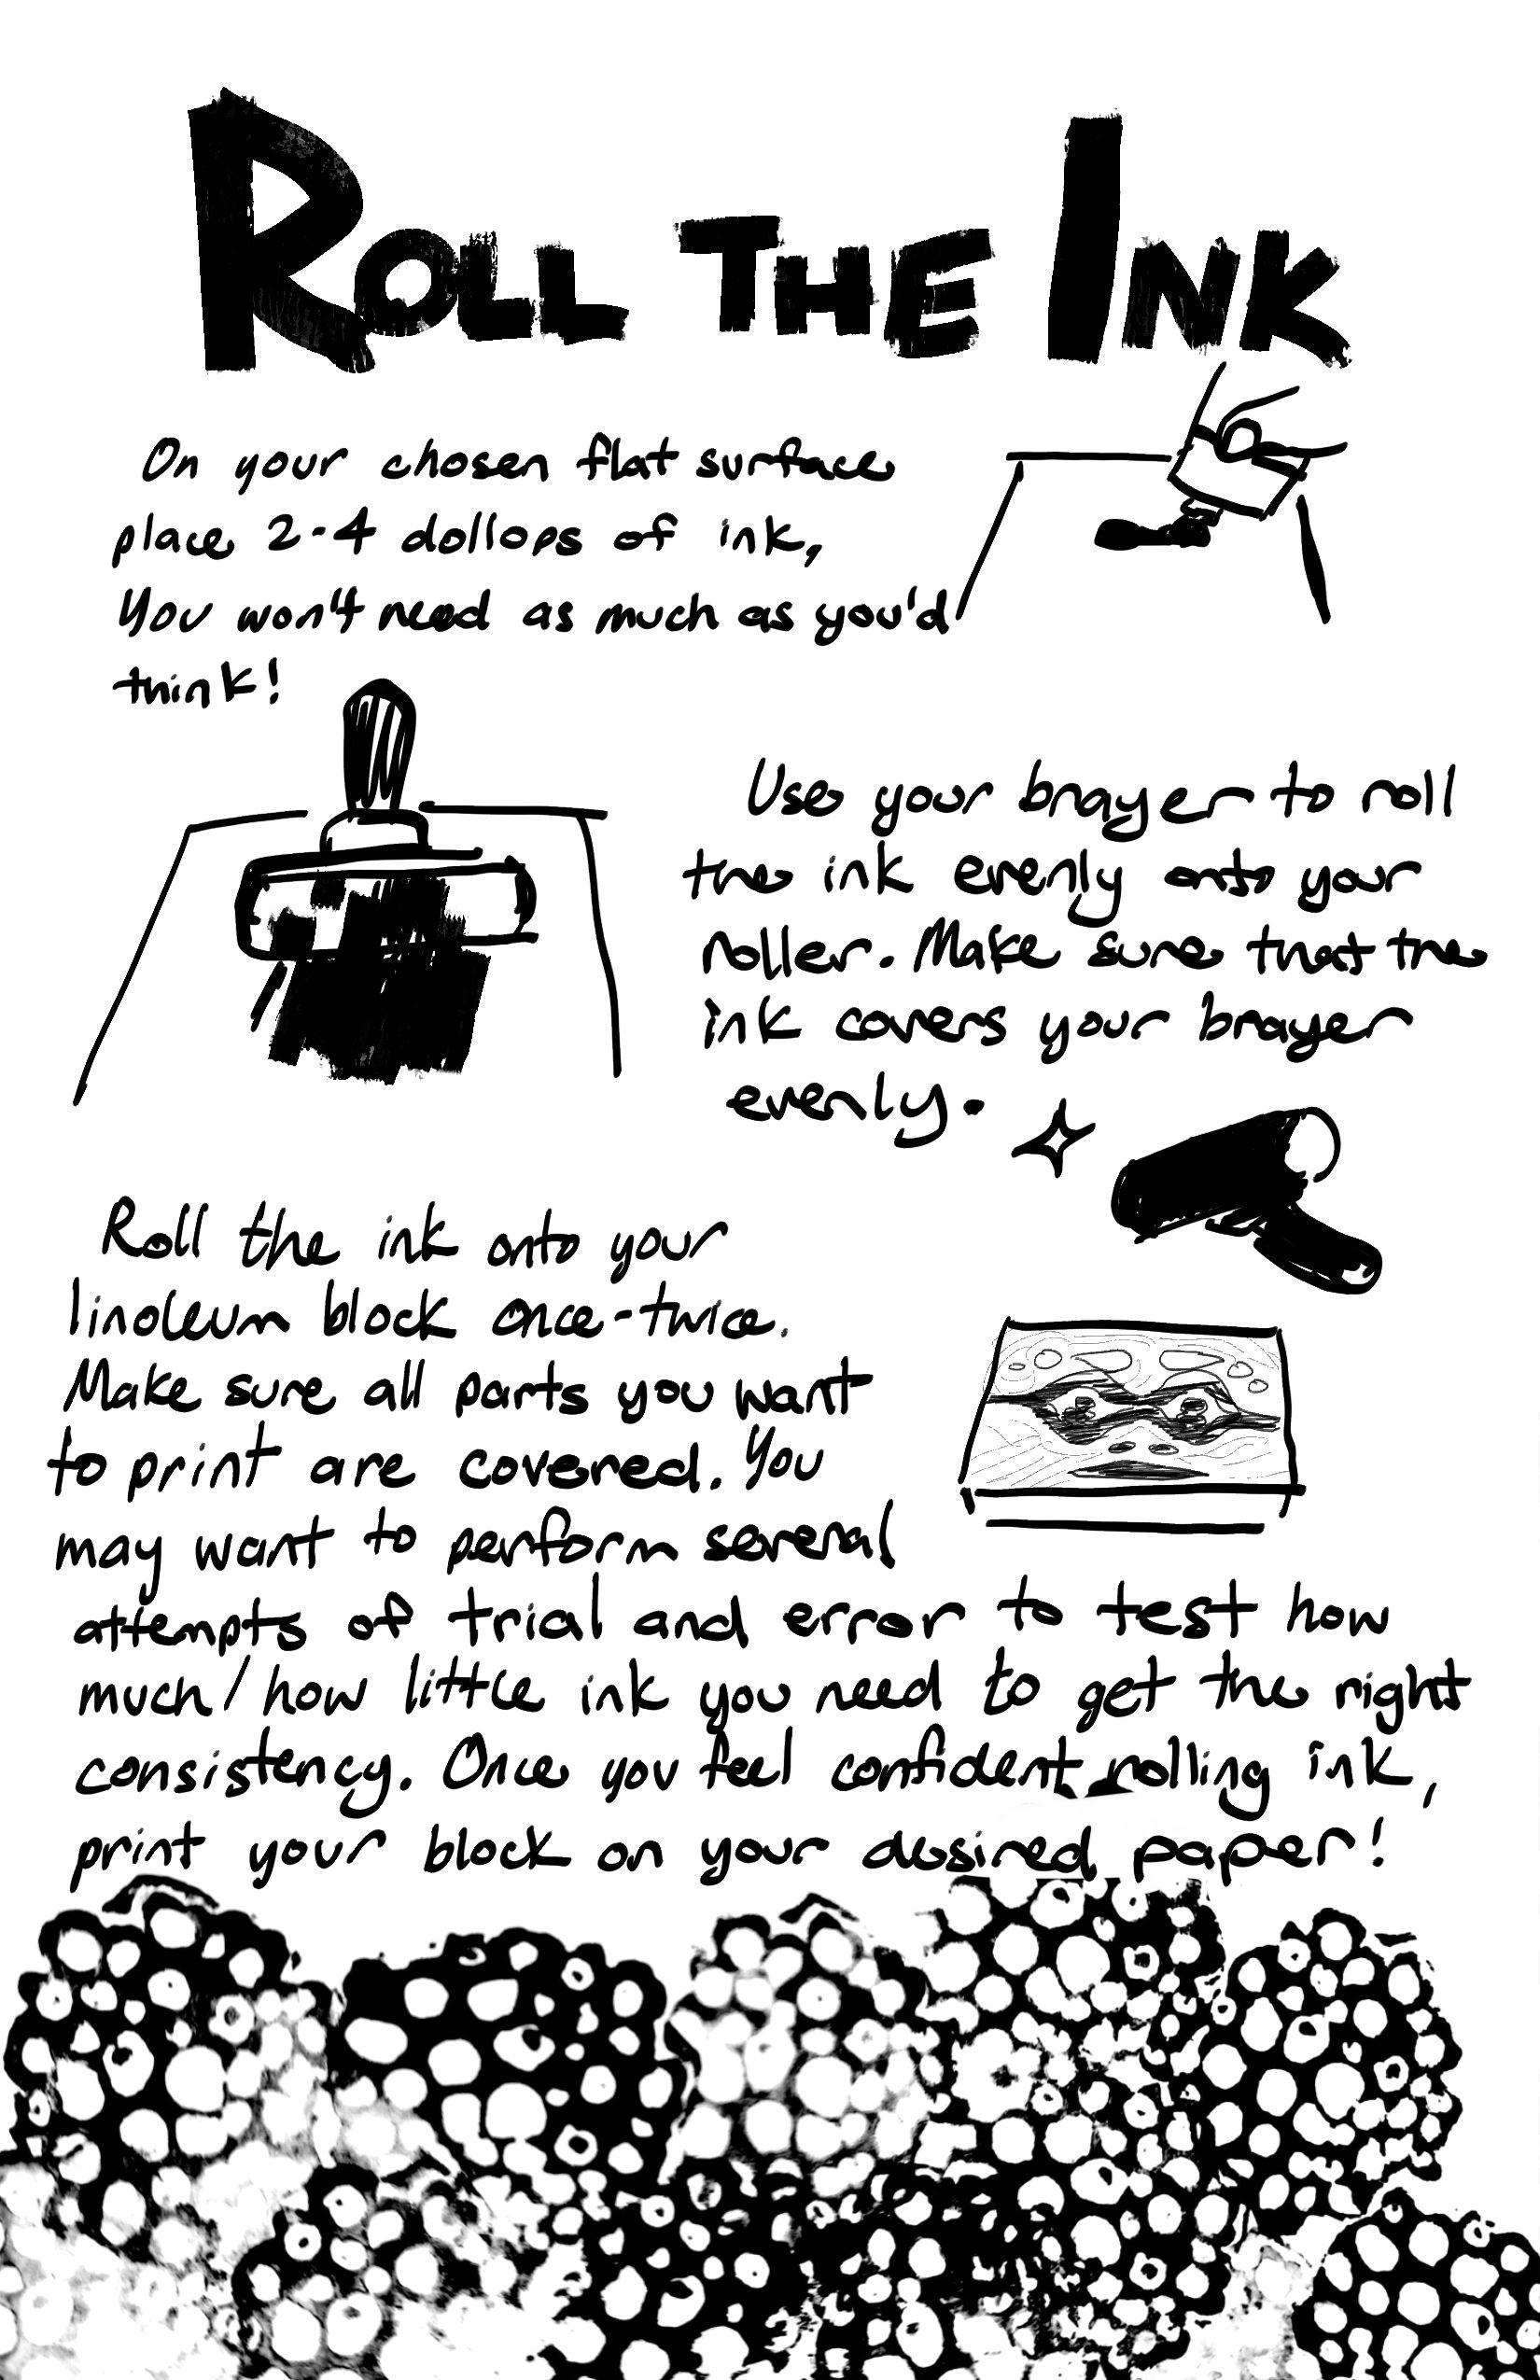 ROLL THE INK
On your chosen flat surface
place 2-4 dollops of ink,
You won't need as much as you'd
think!
Use your brayer to roll
the ink evenly onto your
roller. Make sure that the
ink covers your brayer
evenly.
Roll the ink onto your
linoleum block once-twice.
Make sure all parts you want
to print are covered. You
may want to perform several
attempts of trial and error to test how
much/how little ink you need to get the right
consistency. Once you feel confident rolling ink,
print your block on your desired paper!